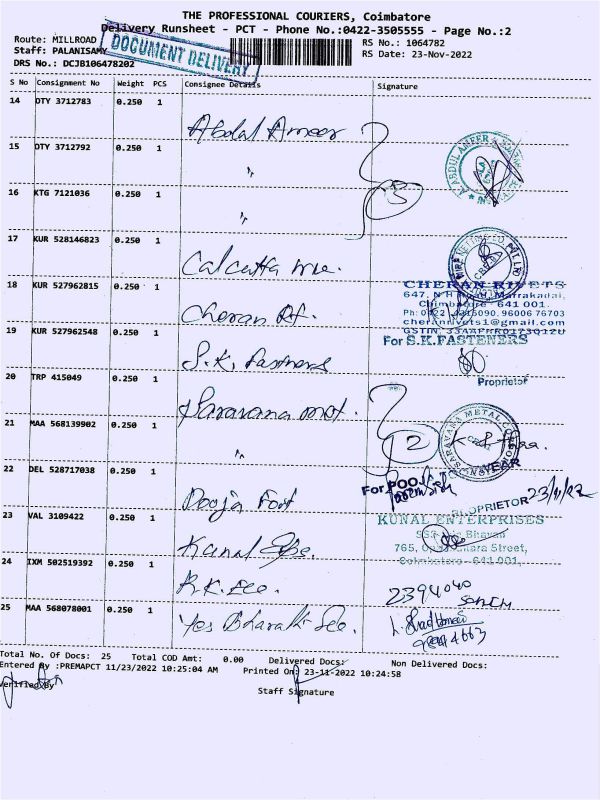 THE PROFESSIONAL COURIERS, Coimbatore
Delivery Runsheet - PCT - Phone No.:0422-3505555 - Page No.:2
Route: MILLROAD RS No.: 1064782
Staff: PALANISAMY RS Date: 23-Nov-2022
DOCUMENT DELIVERY
DRS No.: DCJB106478202
S No Consignment No Weight PCS Consignee Details Signature
14 OTY 3712783 0.250 1 Abdul Ameer
15 OTY 3712792 0.250 1 "
A. ABDUL AMEER
16 KTG 7121036 0.250 1 "
3
17 KUR 528146823 0.250 1 Calcutta wire.
18 KUR 527962815 0.250 1 Cheran Rt.
CHERAN RIVETS
647, N H Road, Marrakadai,
Coimbatore - 641 001.
Ph: 0422 4216090, 96006 76703
cheranrivets1@gmail.com
19 KUR 527962548 0.250 1 S.K. Fastners
For S.K.FASTENERS
Proprietor
20 TRP 415049 0.250 1 Saravana mot.
21 MAA 568139902 0.250 1 "
2
SARAVANA METAL
22 DEL 528717038 0.250 1 Pooja Foot
For POOJA WEAR
PROPRIETOR 23/11/22
23 VAL 3109422 0.250 1 Kunal Epe.
KUNAL ENTERPRISES
Bhavan
765, Oppanakara Street,
Coimbatore - 641 001.
24 IXM 502519392 0.250 1 R.K. Ele. 2394040
25 MAA 568078001 0.250 1 Yes Bharath Ele.
Total No. Of Docs: 25 Total COD Amt: 0.00 Delivered Docs: Non Delivered Docs:
Entered By :PREMAPCT 11/23/2022 10:25:04 AM Printed On: 23-11-2022 10:24:58
Verified By Staff Signature